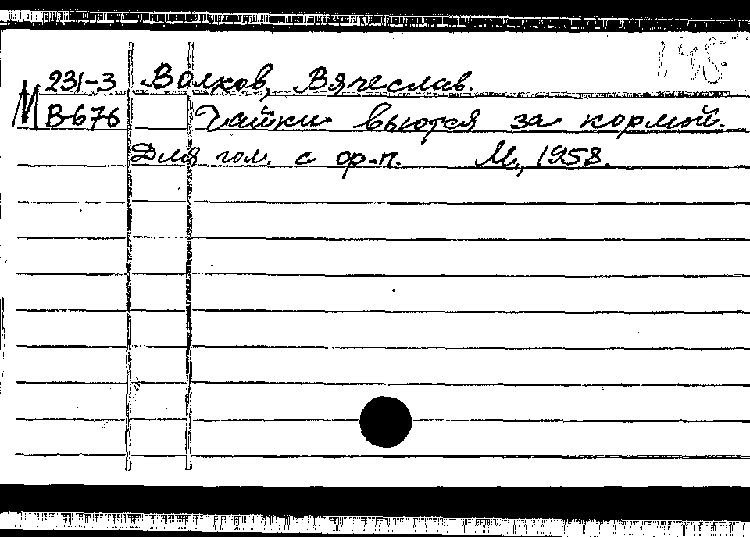 М 231-3 Волков, Вячеслав.
В-676 Чайки вьются за кормой.
Для гол. с ор-п. М., 1958.